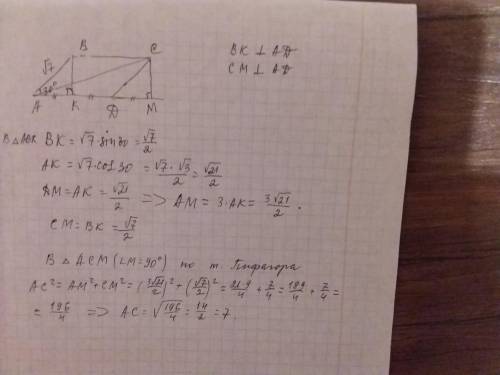 B
C
BK ⊥ AD
√7
CM ⊥ AD
30°
A K D M
В △ABK BK = √7·sin30 = √7/2
AK = √7·cos30 = √7·√3/2 = √21/2
DM = AK = √21/2 => AM = 3·AK = 3√21/2.
CM = BK = √7/2
В △ACM (∠M=90°) по т. Пифагора
AC² = AM² + CM² = (3√21/2)² + (√7/2)² = 21·9/4 + 7/4 = 189/4 + 7/4 =
= 196/4 => AC = √196/4 = 14/2 = 7.